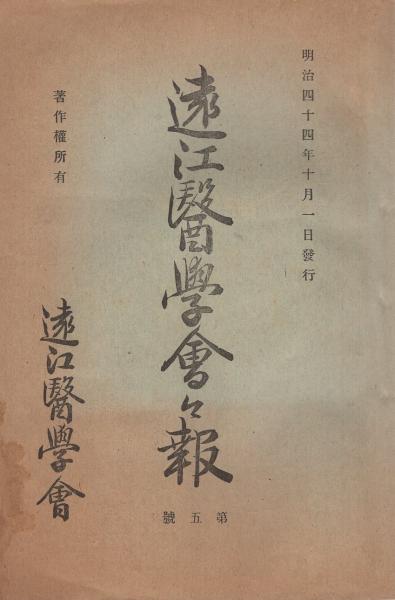 明治四十四年十月一日發行
遠江醫學會々報
第五號
著作權所有
遠江醫學會